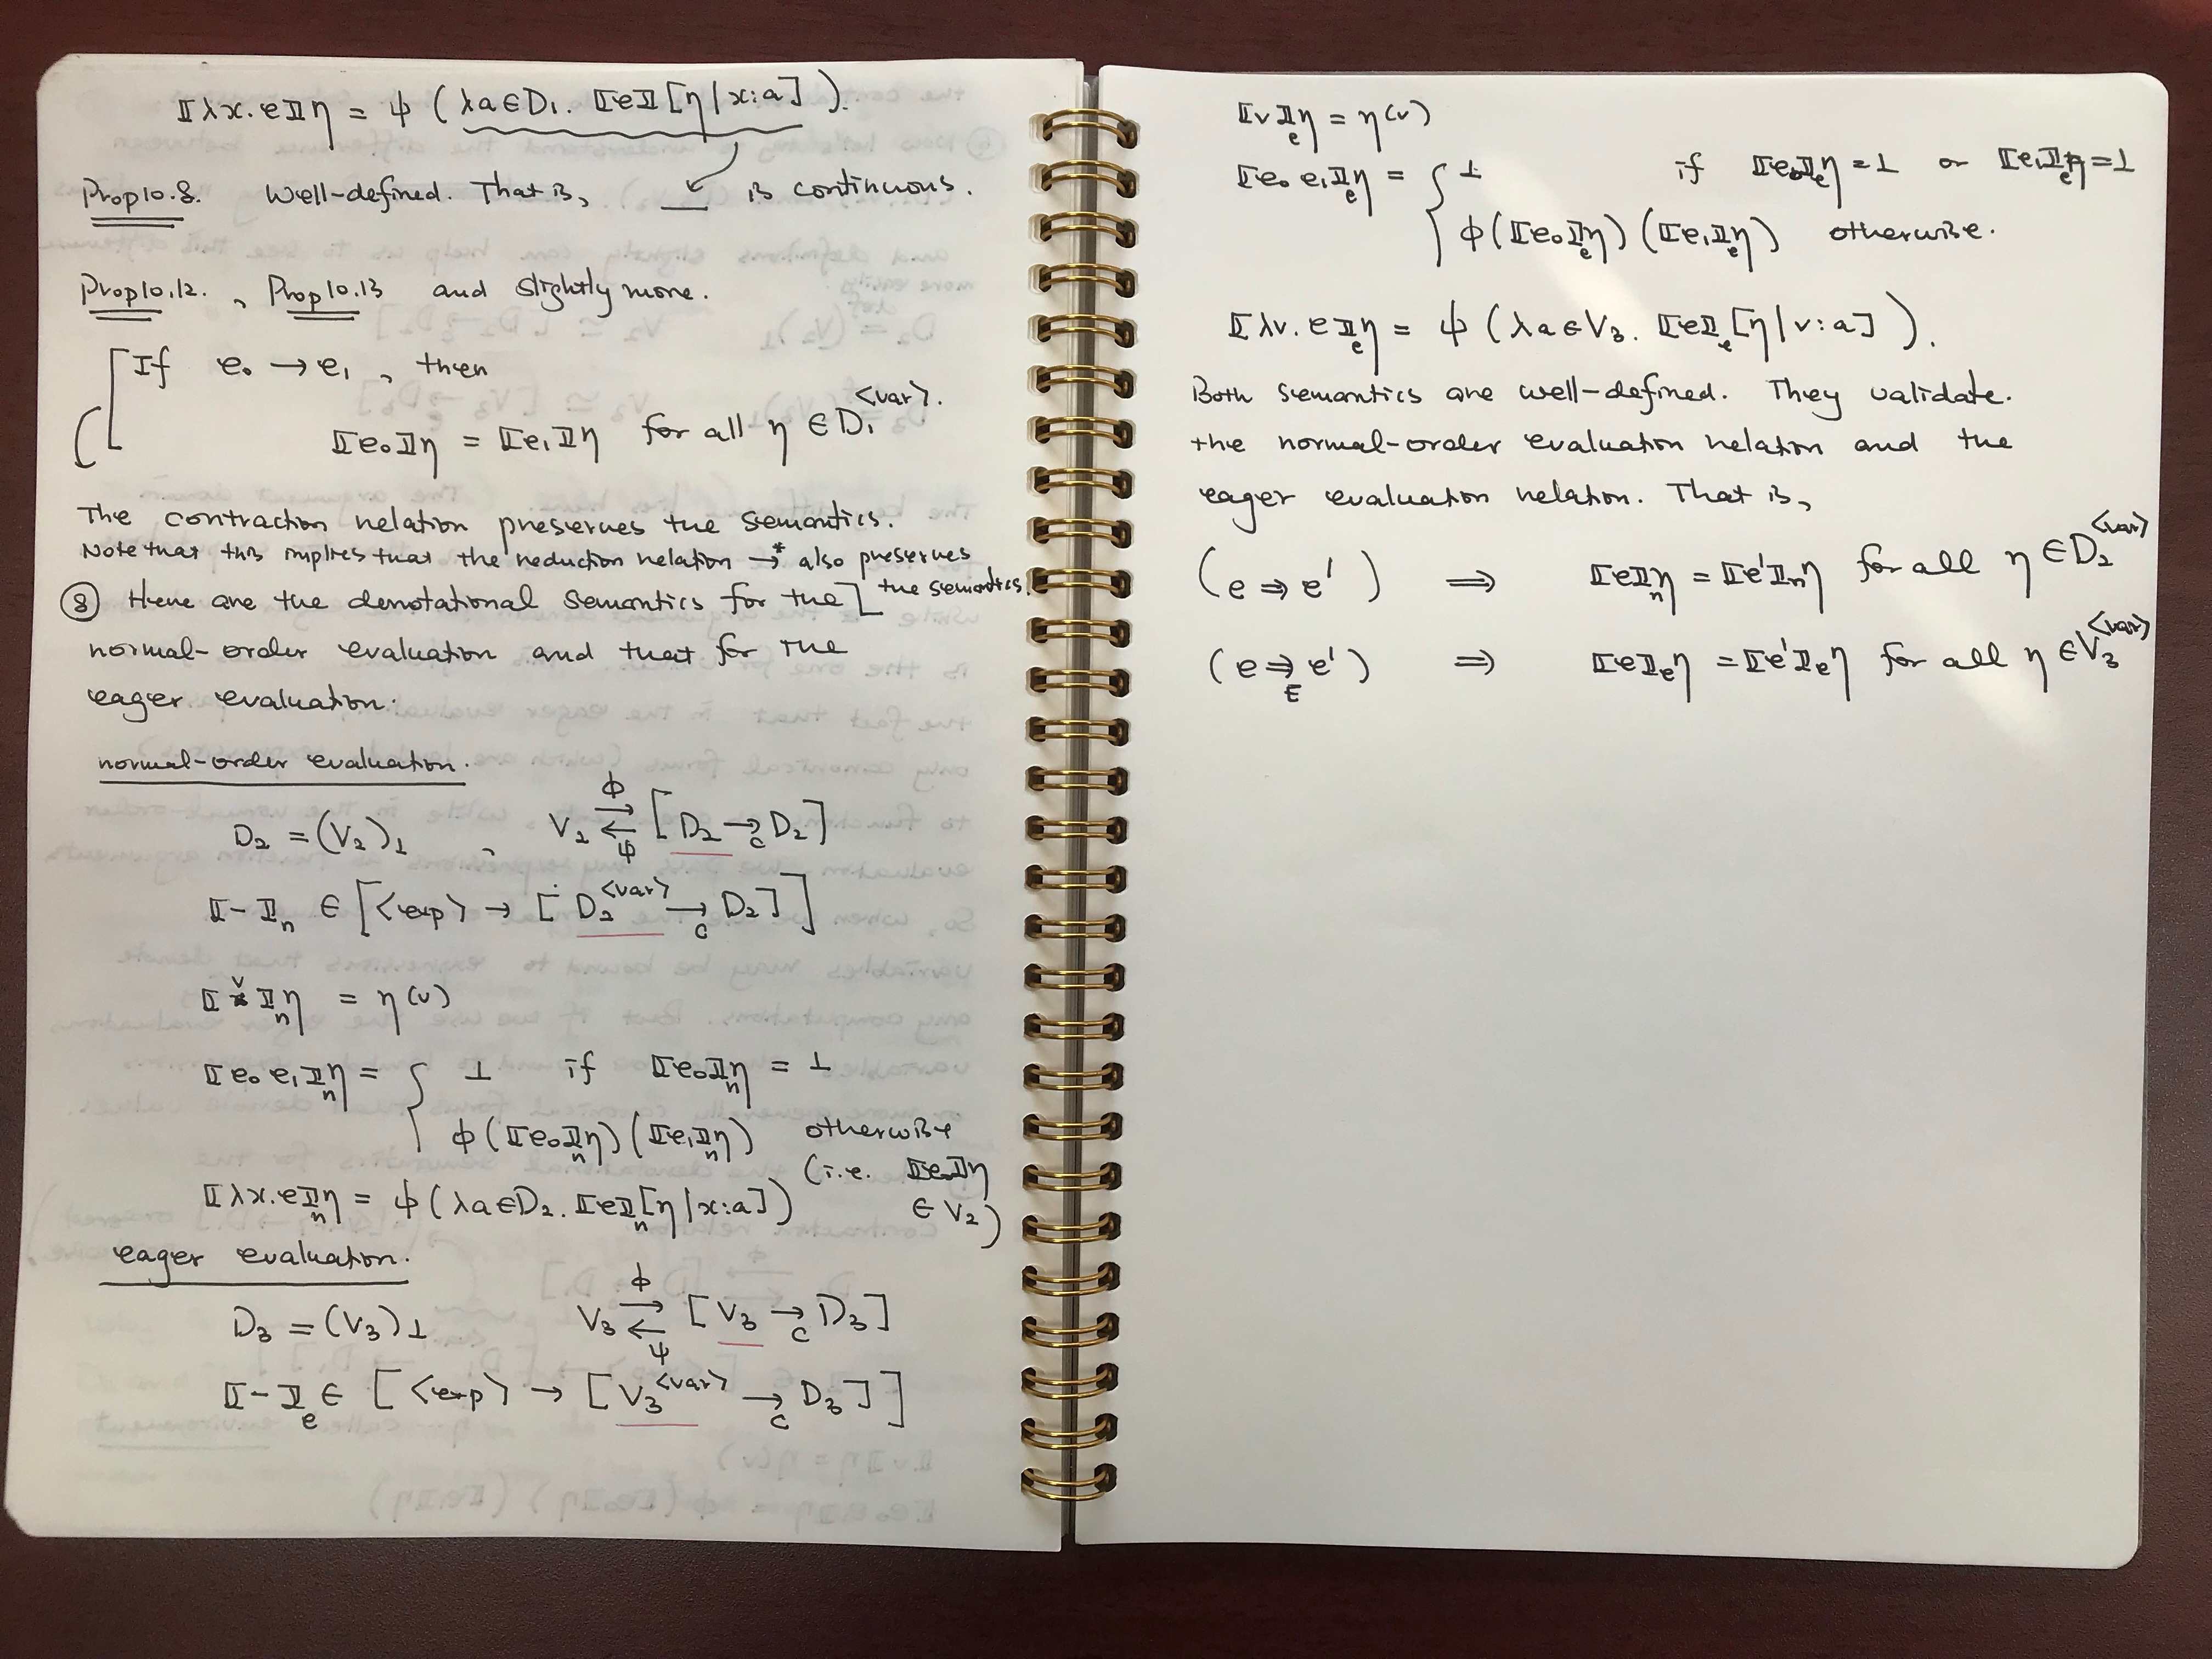 ⟦λx.e⟧η = ψ (λa∈D₁. ⟦e⟧[η|x:a]).
Prop10.8. Well-defined. That is, __ is continuous.
Prop10.12., Prop10.13 and slightly more.
If e₀ → e₁, then
⟦e₀⟧η = ⟦e₁⟧η for all η ∈ D₁^<var>.
The contraction relation preserves the semantics.
Note that this implies that the reduction relation →* also preserves
the semantics.
⑧ Here are the denotational semantics for the
normal-order evaluation and that for the
eager evaluation.
normal-order evaluation.
D₂ = (V₂)⊥ , V₂ ⇄ [D₂ →c D₂] ϕ ψ
⟦-⟧n ∈ [<exp> → [D₂^<var> →c D₂]]
⟦v⟧nη = η(v)
⟦e₀ e₁⟧nη = { ⊥ if ⟦e₀⟧nη = ⊥
ϕ(⟦e₀⟧nη)(⟦e₁⟧nη) otherwise
(i.e. ⟦e₀⟧η
∈ V₂)
⟦λx.e⟧nη = ψ(λa∈D₂. ⟦e⟧n[η|x:a])
eager evaluation.
D₃ = (V₃)⊥ V₃ ⇄ [V₃ →c D₃] ϕ ψ
⟦-⟧e ∈ [<exp> → [V₃^<var> →c D₃]]
⟦v⟧eη = η(v)
⟦e₀ e₁⟧eη = { ⊥ if ⟦e₀⟧eη = ⊥ or ⟦e₁⟧eη = ⊥
ϕ(⟦e₀⟧eη)(⟦e₁⟧eη) otherwise.
⟦λv.e⟧eη = ψ (λa∈V₃. ⟦e⟧e[η|v:a]).
Both semantics are well-defined. They validate.
the normal-order evaluation relation and the
eager evaluation relation. That is,
(e ⇒ e') ⟹ ⟦e⟧nη = ⟦e'⟧nη for all η ∈ D₂^<var>
(e ⇒E e') ⟹ ⟦e⟧eη = ⟦e'⟧eη for all η ∈ V₃^<var>